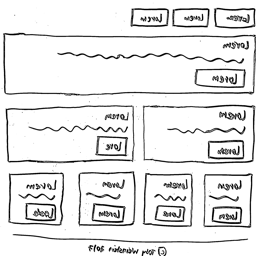 Lorem Lorem Lorem
Lorem
Lorem
Lorem Lorem
Lorem Lore
Lorem Lorem Lorem Lorem
Lorem Lore Lorem
© Tony